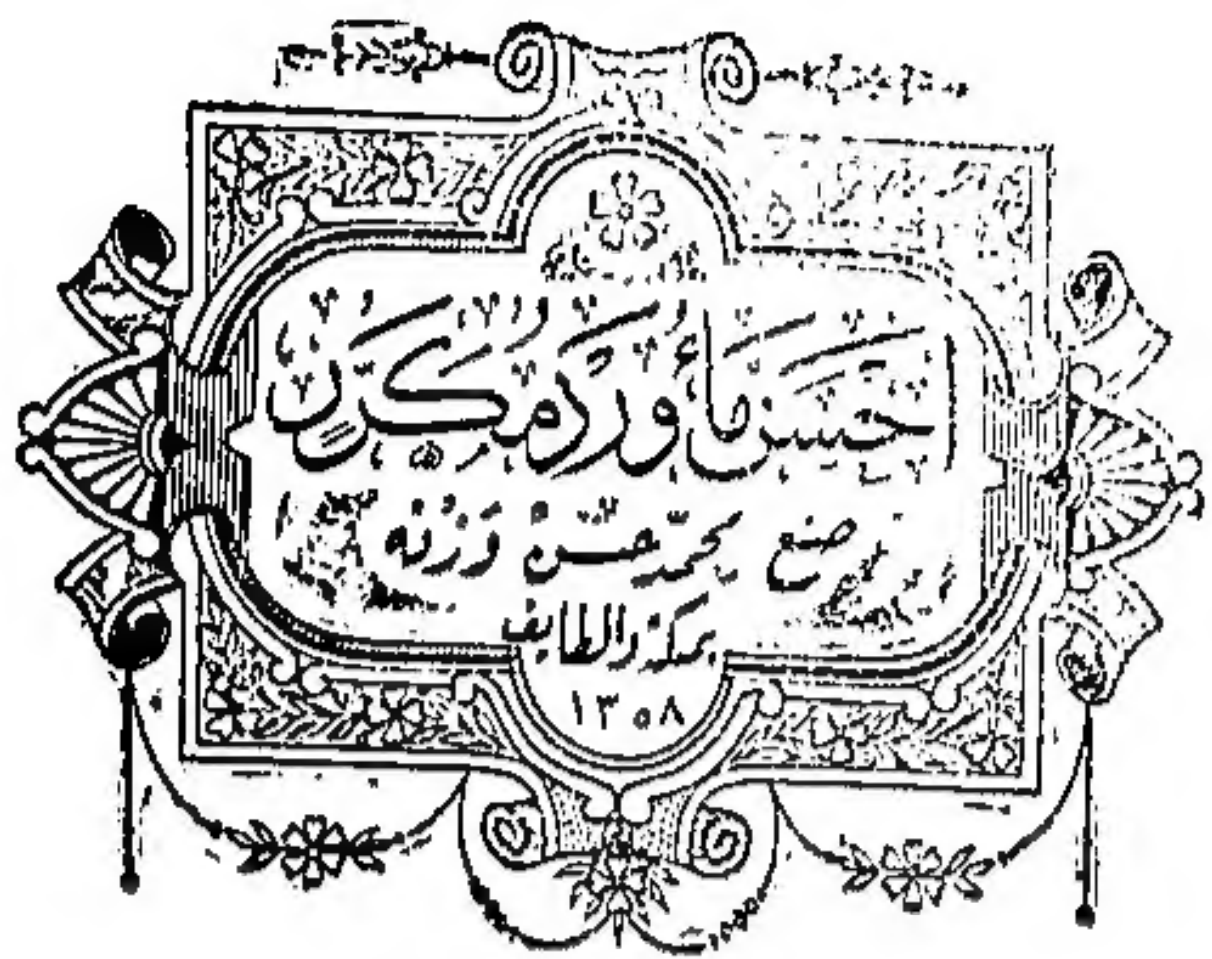 احسن ماء ورد مكرر
صنع محمد وزنه
بمكة والطايف
١٣٥٨